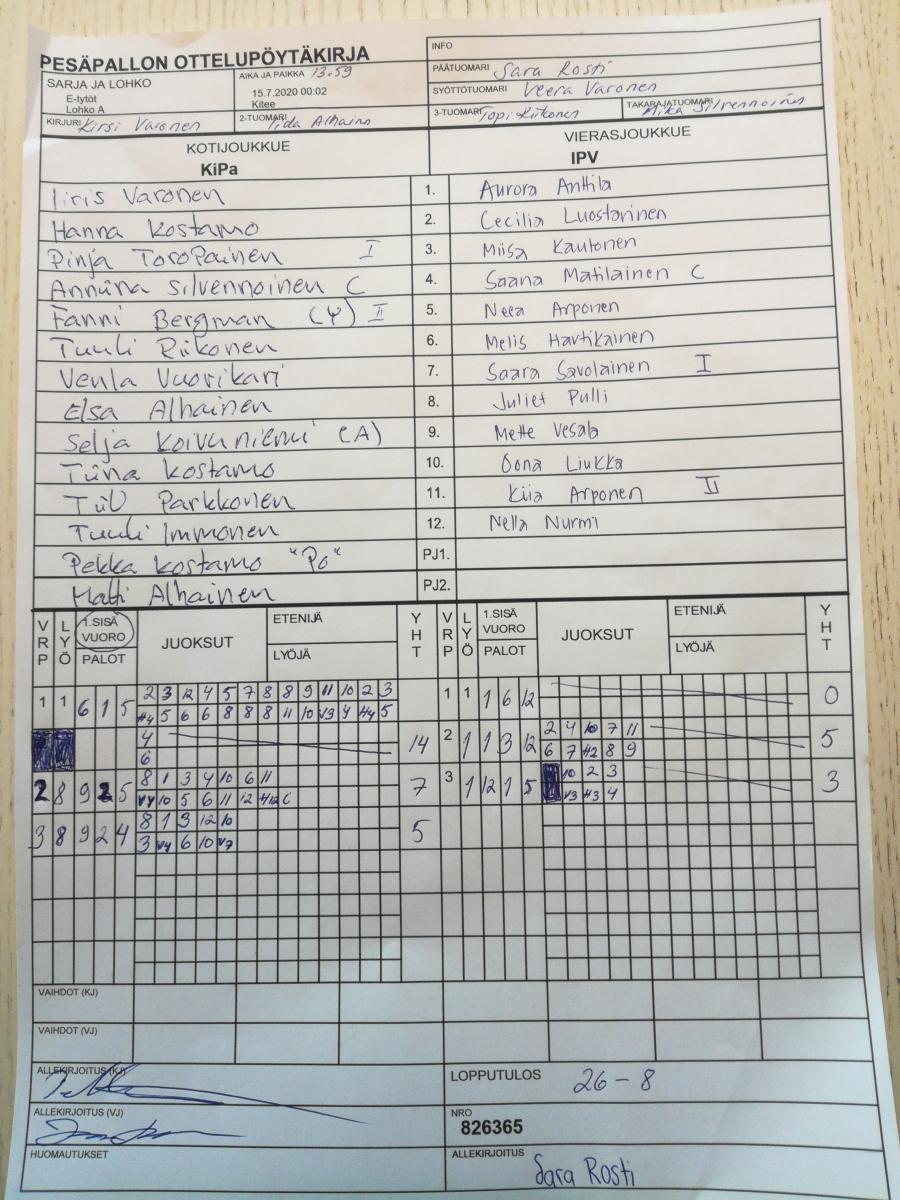 PESÄPALLON OTTELUPÖYTÄKIRJA
INFO
SARJA JA LOHKO
E-tytöt
Lohko A
AIKA JA PAIKKA 13.59
15.7.2020 00:02
Kitee
PÄÄTUOMARI Sara Rosti
SYÖTTÖTUOMARI Veera Varonen
KIRJURI Kirsi Varonen
2-TUOMARI Iida
3-TUOMARI Topi
TAKARAJATUOMARI Mika Silvennoinen
KOTIJOUKKUE
KiPa
VIERASJOUKKUE
IPV
Iiris Varonen 1. Aurora Anttila
Hanna Kostamo 2. Cecilia Luostarinen
Pinja Toropainen I 3. Miisa Kautonen
Anniina Silvennoinen C 4. Saana Matilainen C
Fanni Bergman (Y) II 5. Neea Arponen
Tuuli Riikonen 6. Melis Hartikainen
Venla Vuorikari 7. Saara Savolainen I
Elsa Alhainen 8. Juliet Pulli
Selja Koivuniemi (A) 9. Mette Vesala
Tiina Kostamo 10. Oona Liukka
Tiil Parkkonen 11. Kiia Arponen II
Tuuli Immonen 12. Nella Nurmi
Pekka Kostamo "Po" PJ1.
Matti Alhainen PJ2.
VRP LYÖ 1.SISÄ VUORO PALOT JUOKSUT ETENIJÄ LYÖJÄ YHT VRP LYÖ 1.SISÄ VUORO PALOT JUOKSUT ETENIJÄ LYÖJÄ YHT
1 1 6 1 5 2 3 12 4 5 7 8 8 9 11 10 2 3 1 1 1 6 12 0
H4 5 6 6 8 8 8 11 10 V3 4 H4 5
4 14 2 1 1 3 12 2 4 10 7 11 5
6 6 7 H2 8 9
2 8 9 2 5 8 1 3 4 10 6 11 7 3 1 12 1 5 10 2 3 3
V4 10 5 6 11 12 H12 V3 H3 4
3 8 9 2 4 8 1 3 12 10 5
3 V4 6 10 V7
VAIHDOT (KJ)
VAIHDOT (VJ)
ALLEKIRJOITUS (KJ)
LOPPUTULOS 26-8
ALLEKIRJOITUS (VJ)
NRO
826365
HUOMAUTUKSET
ALLEKIRJOITUS Sara Rosti